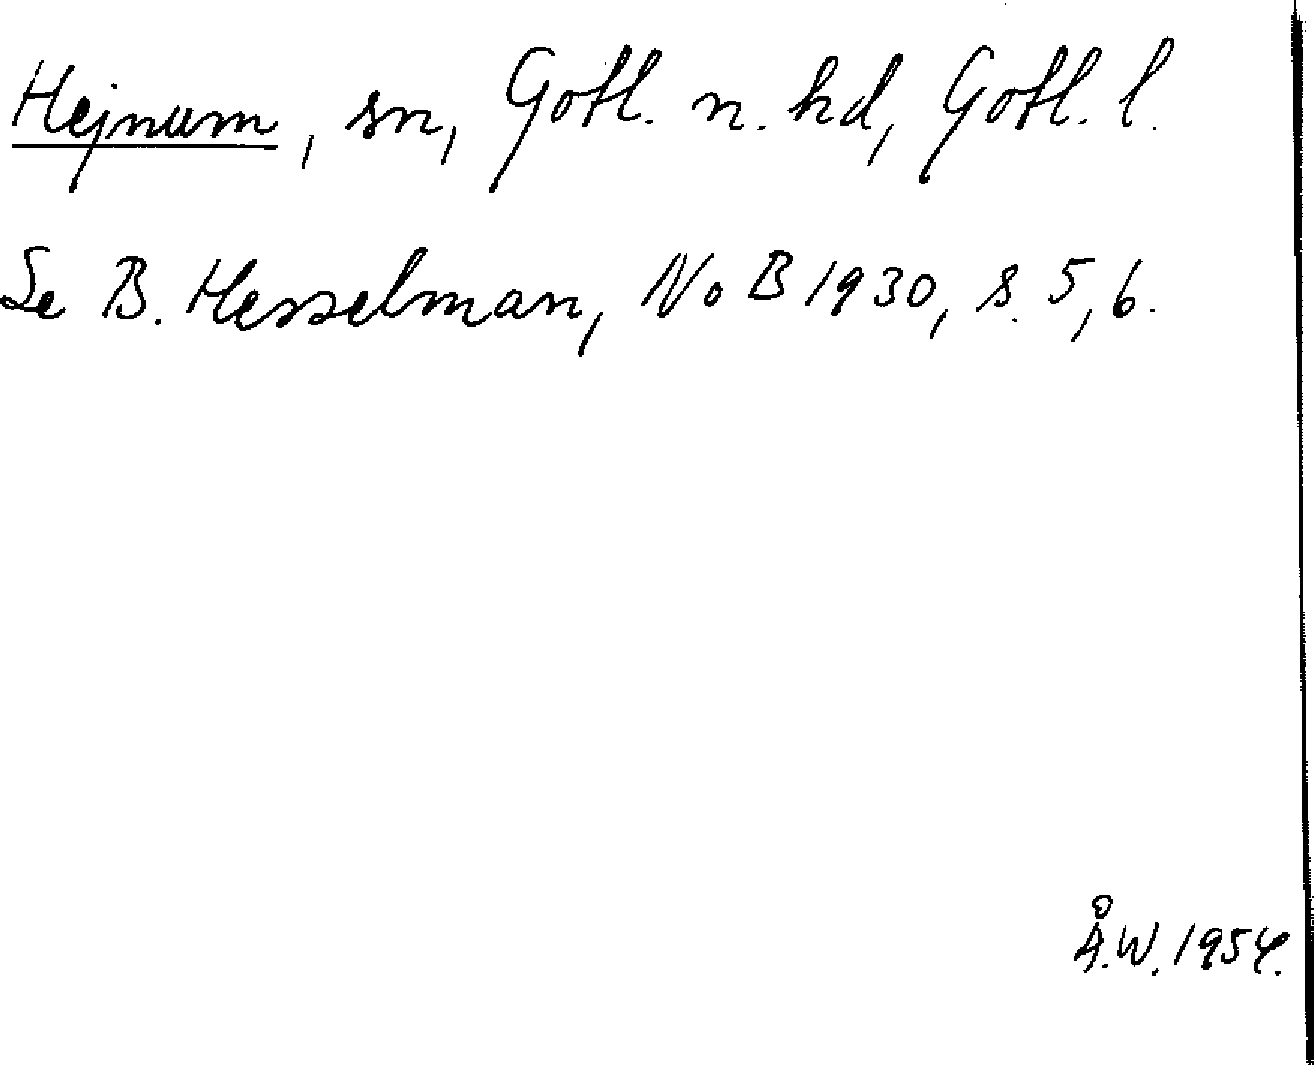 Hejnum, sn, Gotl. n. hd, Gotl. l.
Se B. Hesselman, NoB 1930, s. 5, 6.
Å.W. 1954.